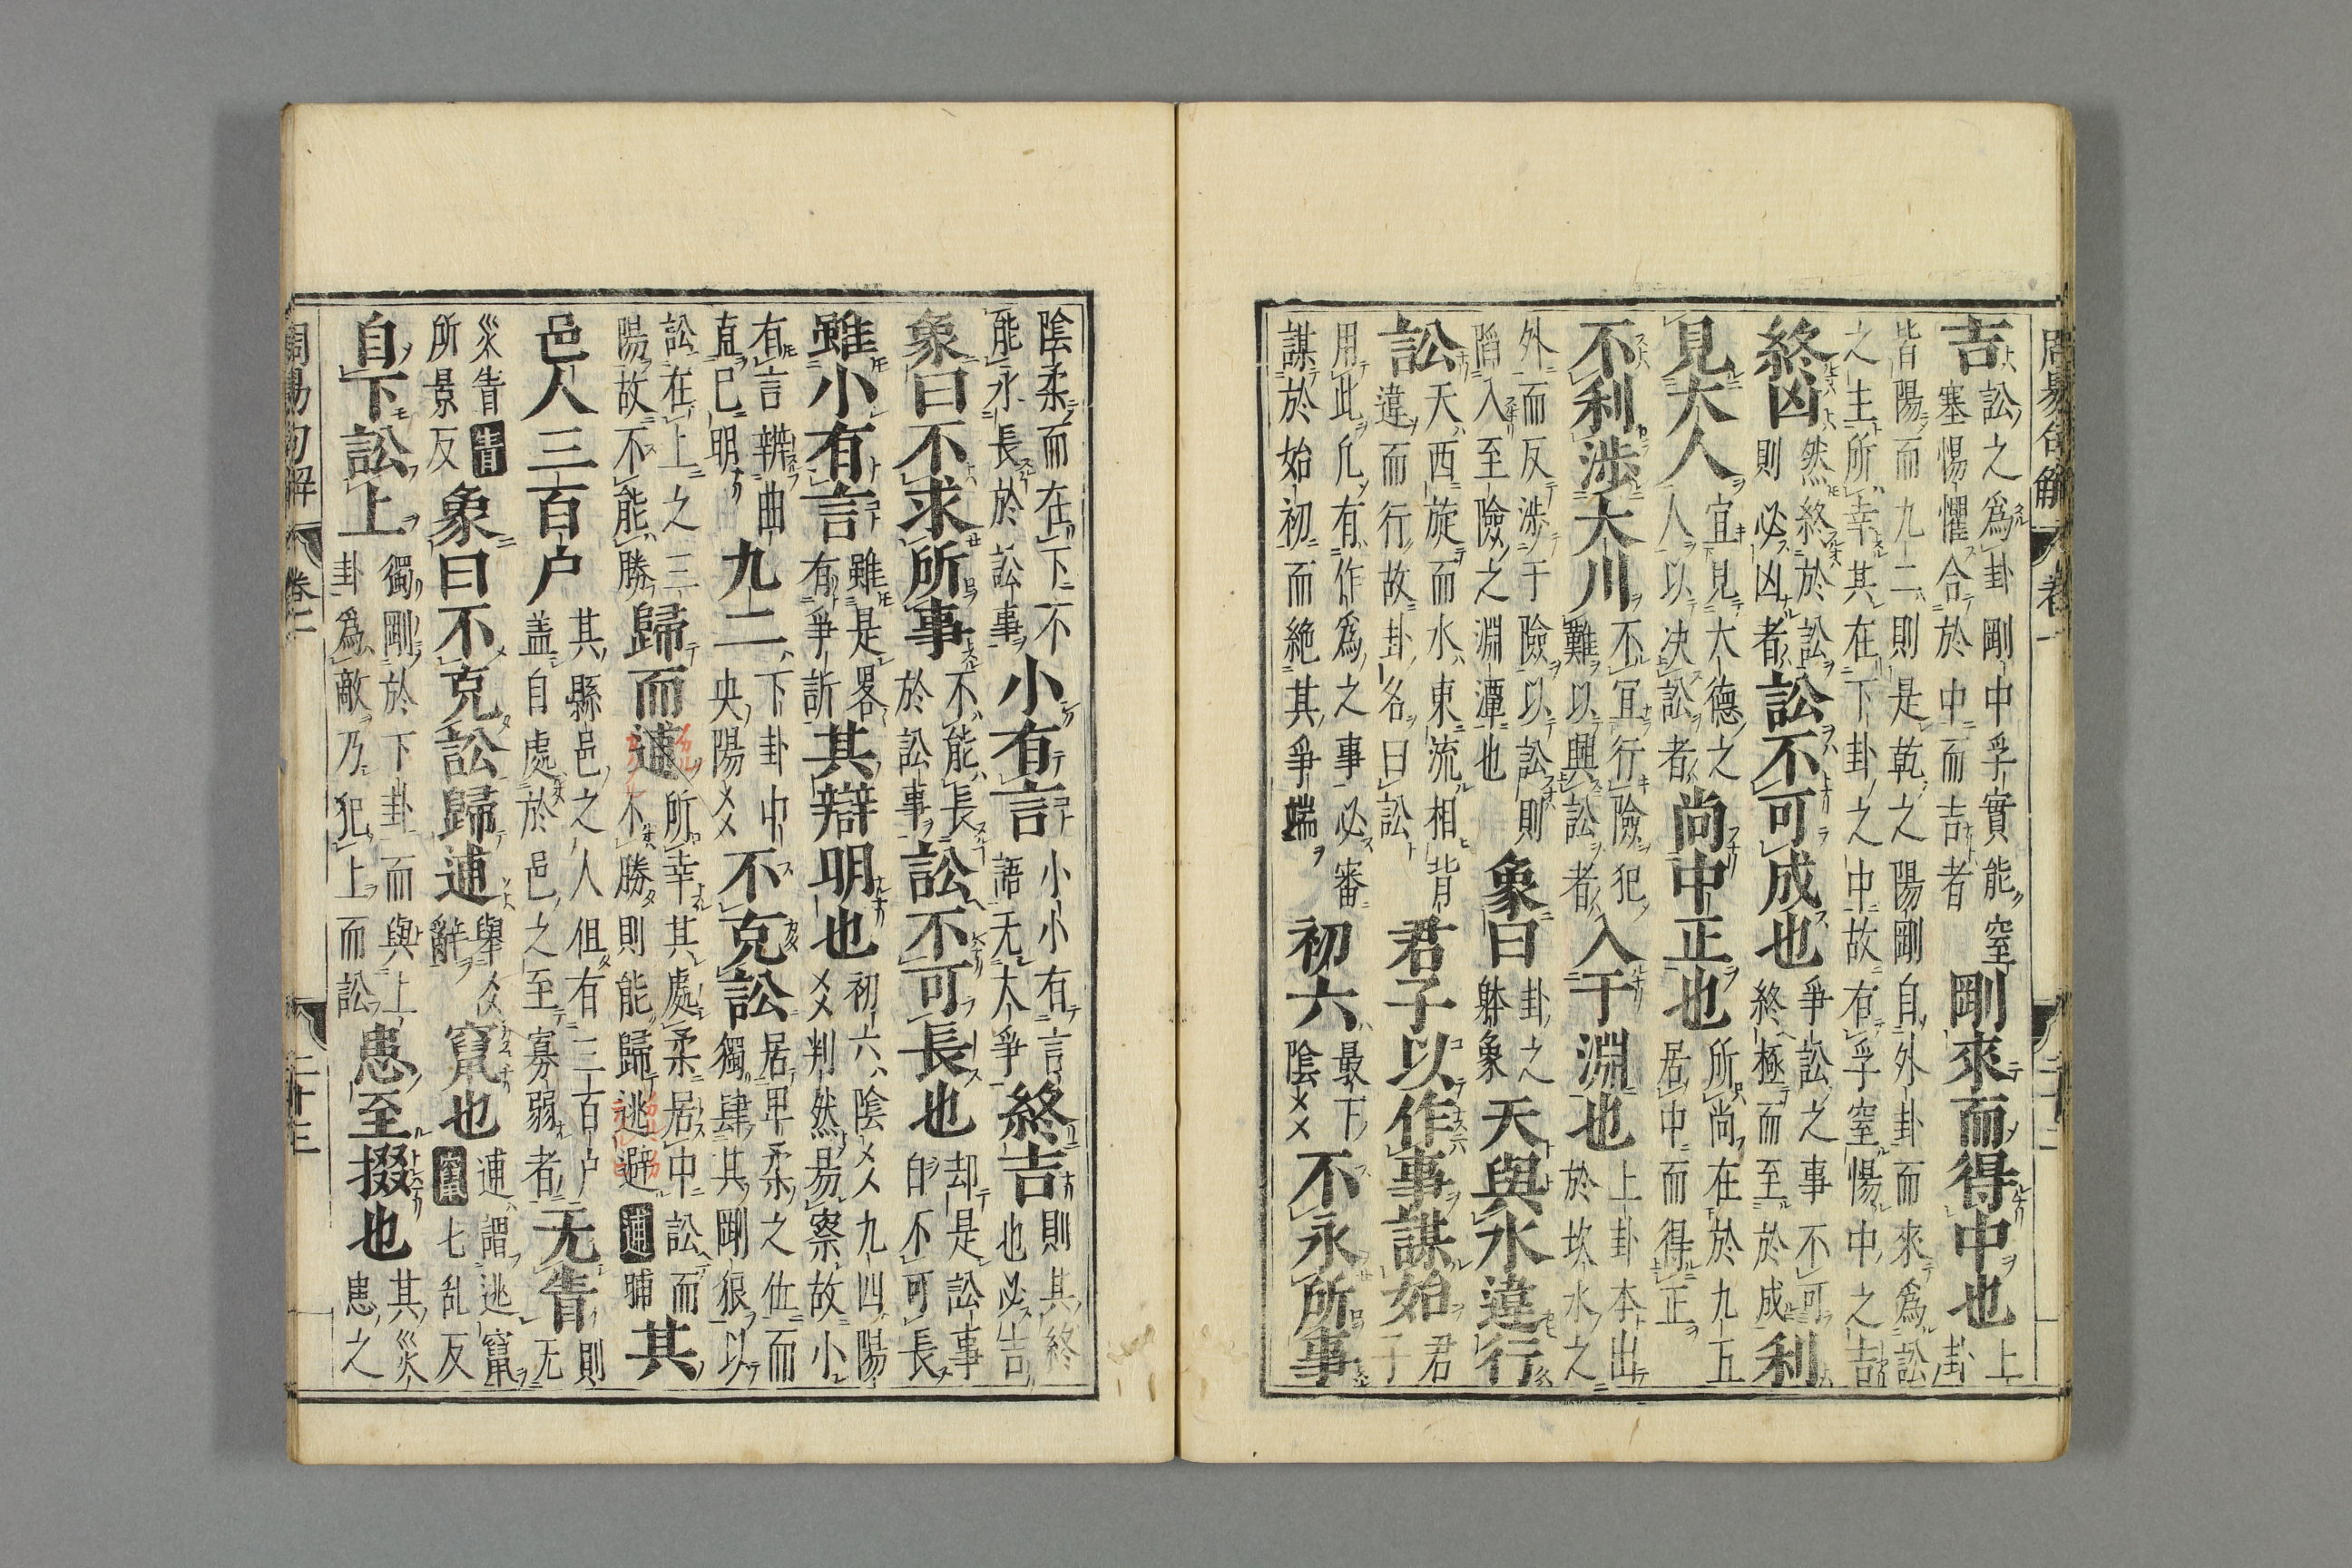 周易句解 卷二 二十二
吉訟之爲卦剛中孚實能窒塞惕懼合於中而吉者剛來而得中也上卦
皆陽而九二則是乾之陽剛自外卦而來爲訟之主所幸其在下卦之中故有孚窒惕中之吉
終凶然終於訟則必凶者訟不可成也爭訟之事不可終極而至於成利
見大人宜見大德之人以决訟者尚中正也所尚在於九五居中而得正
不利涉大川不冝行險犯難以興訟者入于淵也上卦本出於坎水之
外而反涉于險以訟則陷入至險之淵潭也象曰卦之躰象天與水違行
訟天西旋而水東流相背違而行故卦名曰訟君子以作事謀始君子
用此凢有作爲之事必審謀於始初而絶其爭端初六最下陰爻不永所事
陰柔而在下不能永長於訟事小有言小小有言語无大爭終吉則其終也必吉
象曰不求所事不能長於訟事訟不可長也却是訟事自不可長
雖小有言雖是畧有爭訴其辯明也初六陰爻九四陽爻判然易察故小
有言辨曲直已明九二下卦中央陽爻不克訟居甲柔之位而獨肆其剛狠以
訟在上之三陽故不能勝歸而逋所幸其處柔居中訟而不勝則能歸逃避逋晡其
邑人三百户其縣邑之人但有三百户盖自處於邑之至寡弱者无眚則无
災眚眚所景反象曰不克訟歸逋舉爻辭竄也逋謂逃竄竄七乱反
自下訟上獨剛於下卦而與上卦爲敵乃犯上而訟患至掇也其災患之
周易句解 卷二 二十三